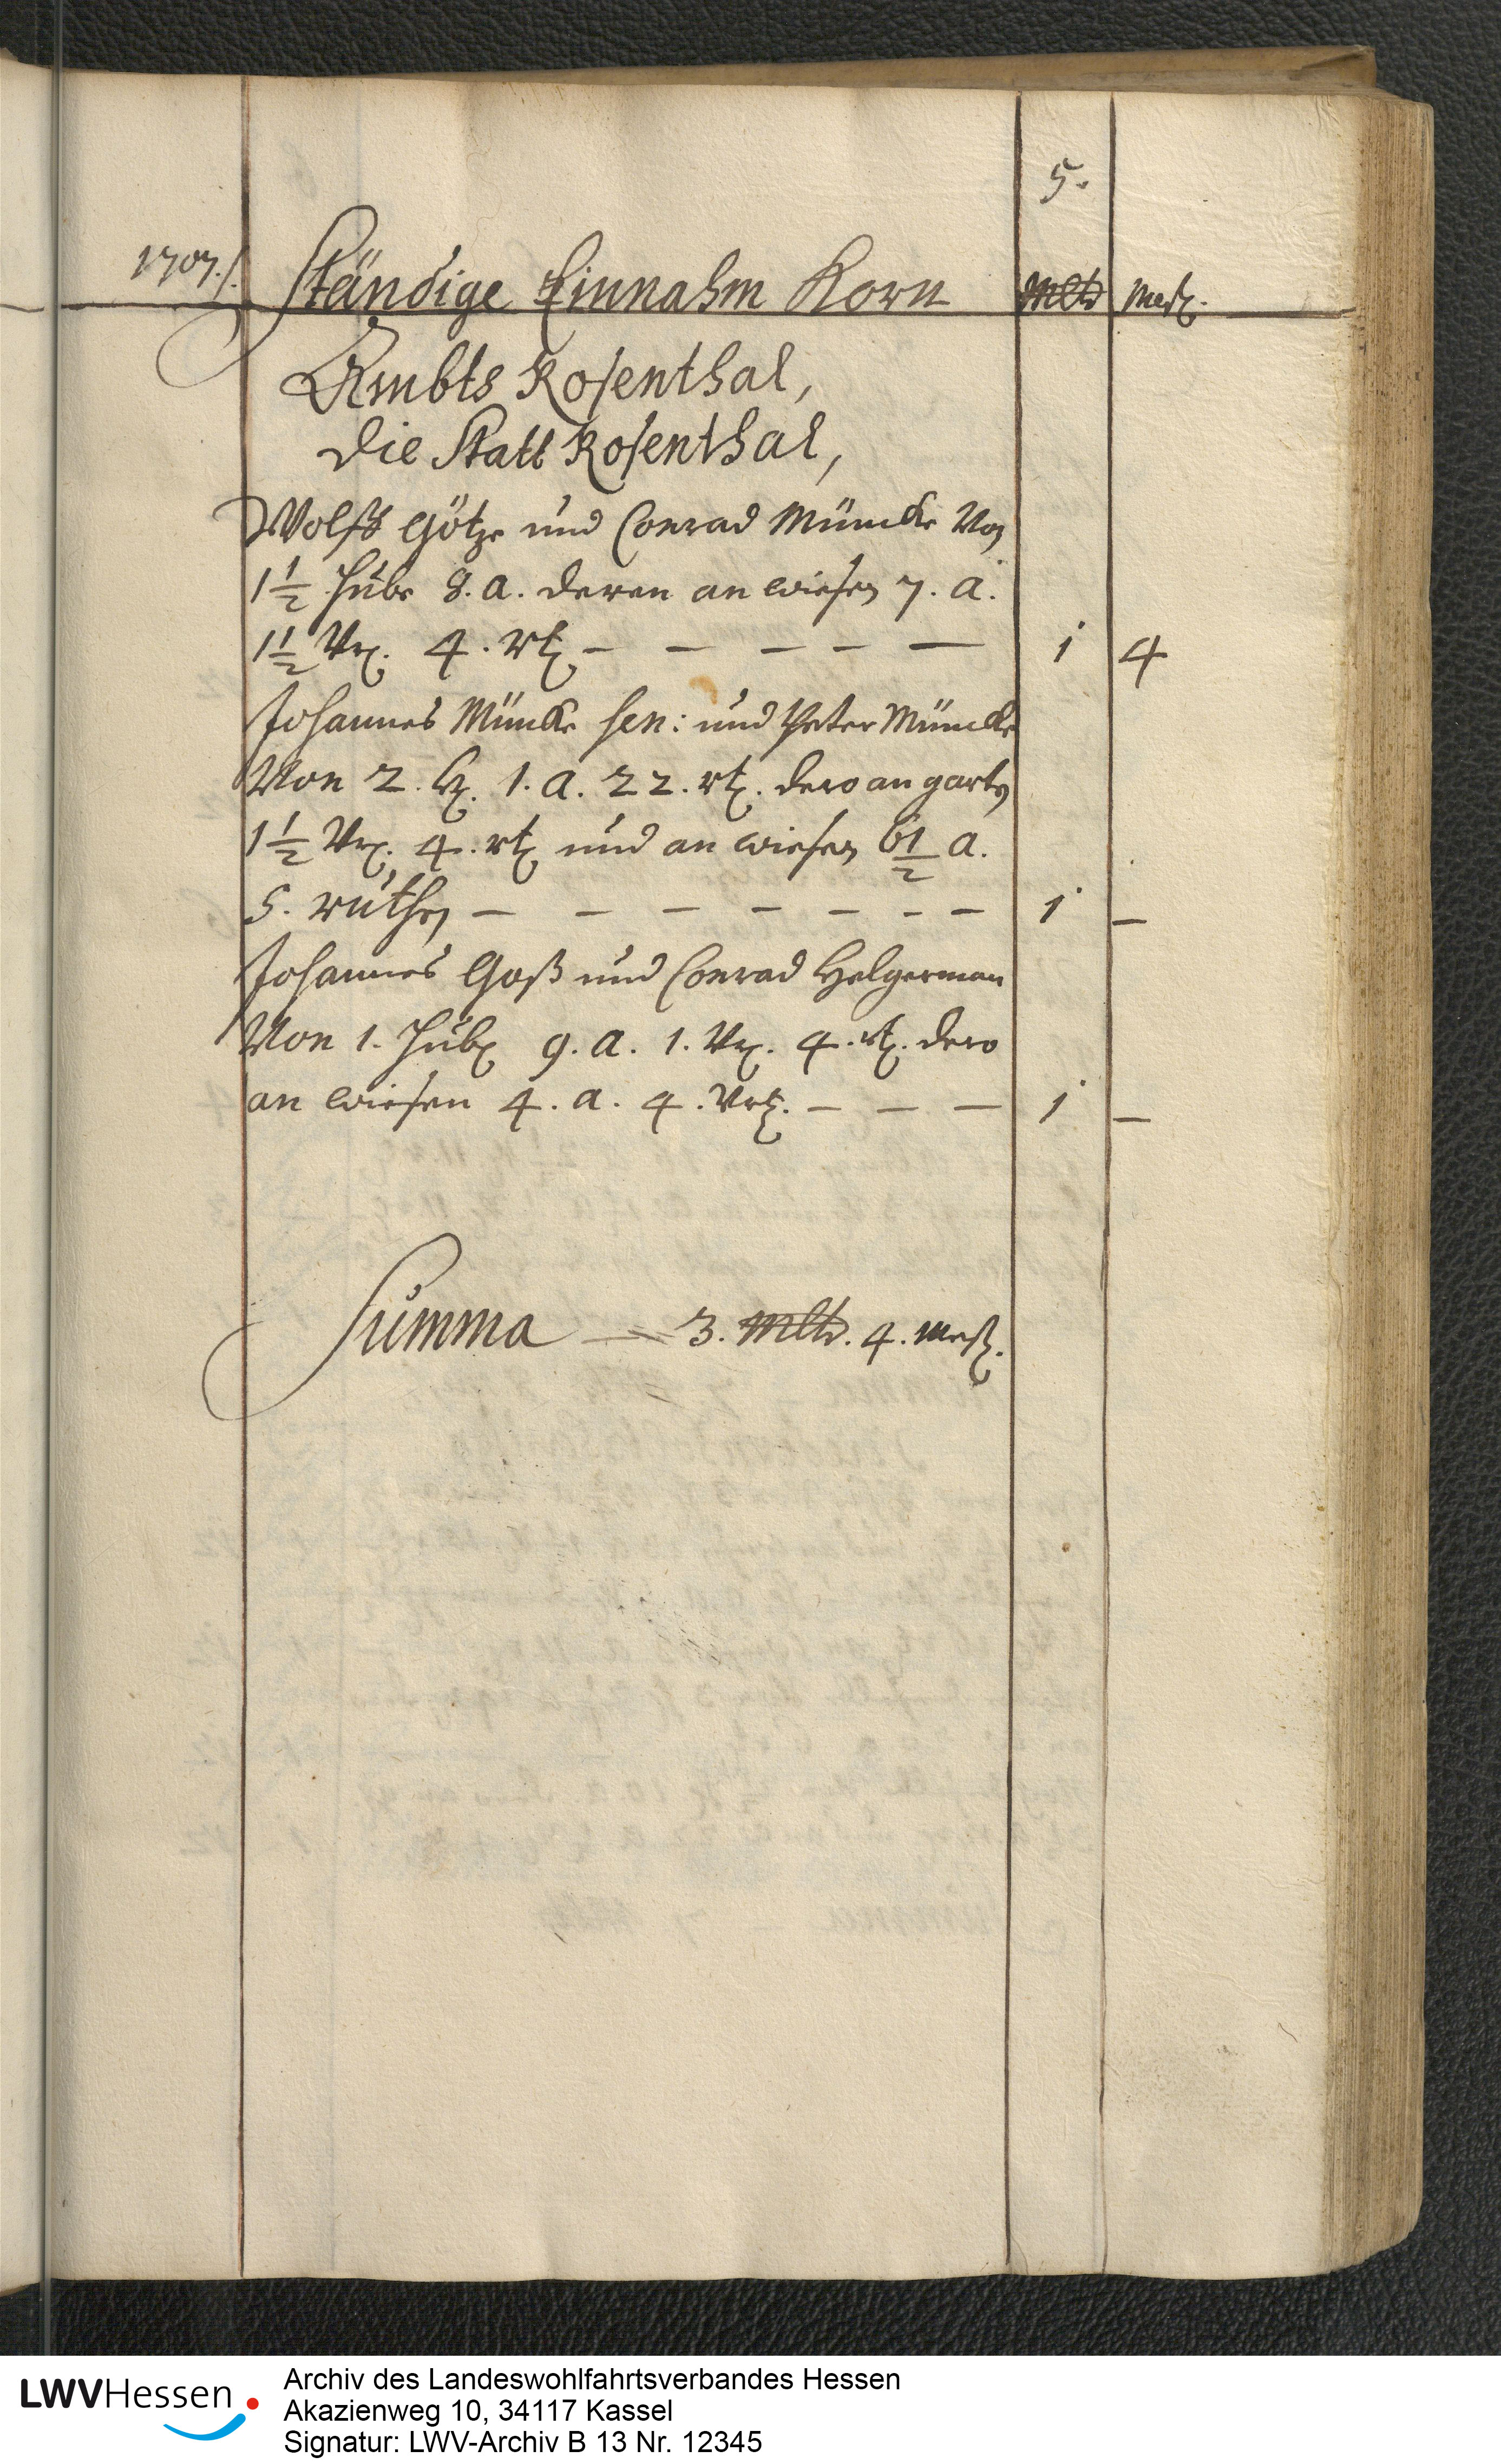 5.
1707./. Ständige Einnahm Korn Mltr Mest.
Ambts Rosenthal,
die Statt Rosenthal,
Wolff Götze und Conrad Müncke Von
1 1/2 Hube 8. a. deren an wiesen 7. a.
1 1/2 Vrt. 4. Rt. – – – – – 1 4
Johannes Müncke sen: und Peter Müncke
Von 2. H. 1. a. 22. rt. dero an garten
1 1/2 Vrt. 4. rt und an wiesen 6 1/2 a.
5. ruthen – – – – – – – 1 –
Johannes Goß und Conrad Helgerman
Von 1. Hub 9. a. 1. Vrt. 4. rt. dero
an wiesen 4. a. 4. Vrt. – – – 1 –
Summa — 3. Mltr. 4. Mest.
LWVHessen
Archiv des Landeswohlfahrtsverbandes Hessen
Akazienweg 10, 34117 Kassel
Signatur: LWV-Archiv B 13 Nr. 12345